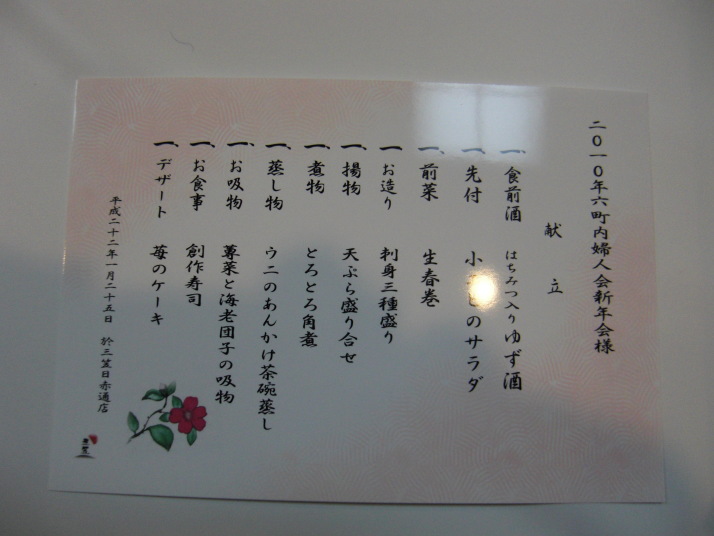 二〇一〇年六町内婦人会新年会様
献立
一、食前酒 はちみつ入りゆず酒
一、先付 小 のサラダ
一、前菜 生春巻
一、お造り 刺身三種盛り
一、揚物 天ぷら盛り合せ
一、煮物 とろとろ角煮
一、蒸し物 ウニのあんかけ茶碗蒸し
一、お吸物 蓴菜と海老団子の吸物
一、お食事 創作寿司
一、デザート 苺のケーキ
平成二十二年一月二十五日 於三笠日赤通店